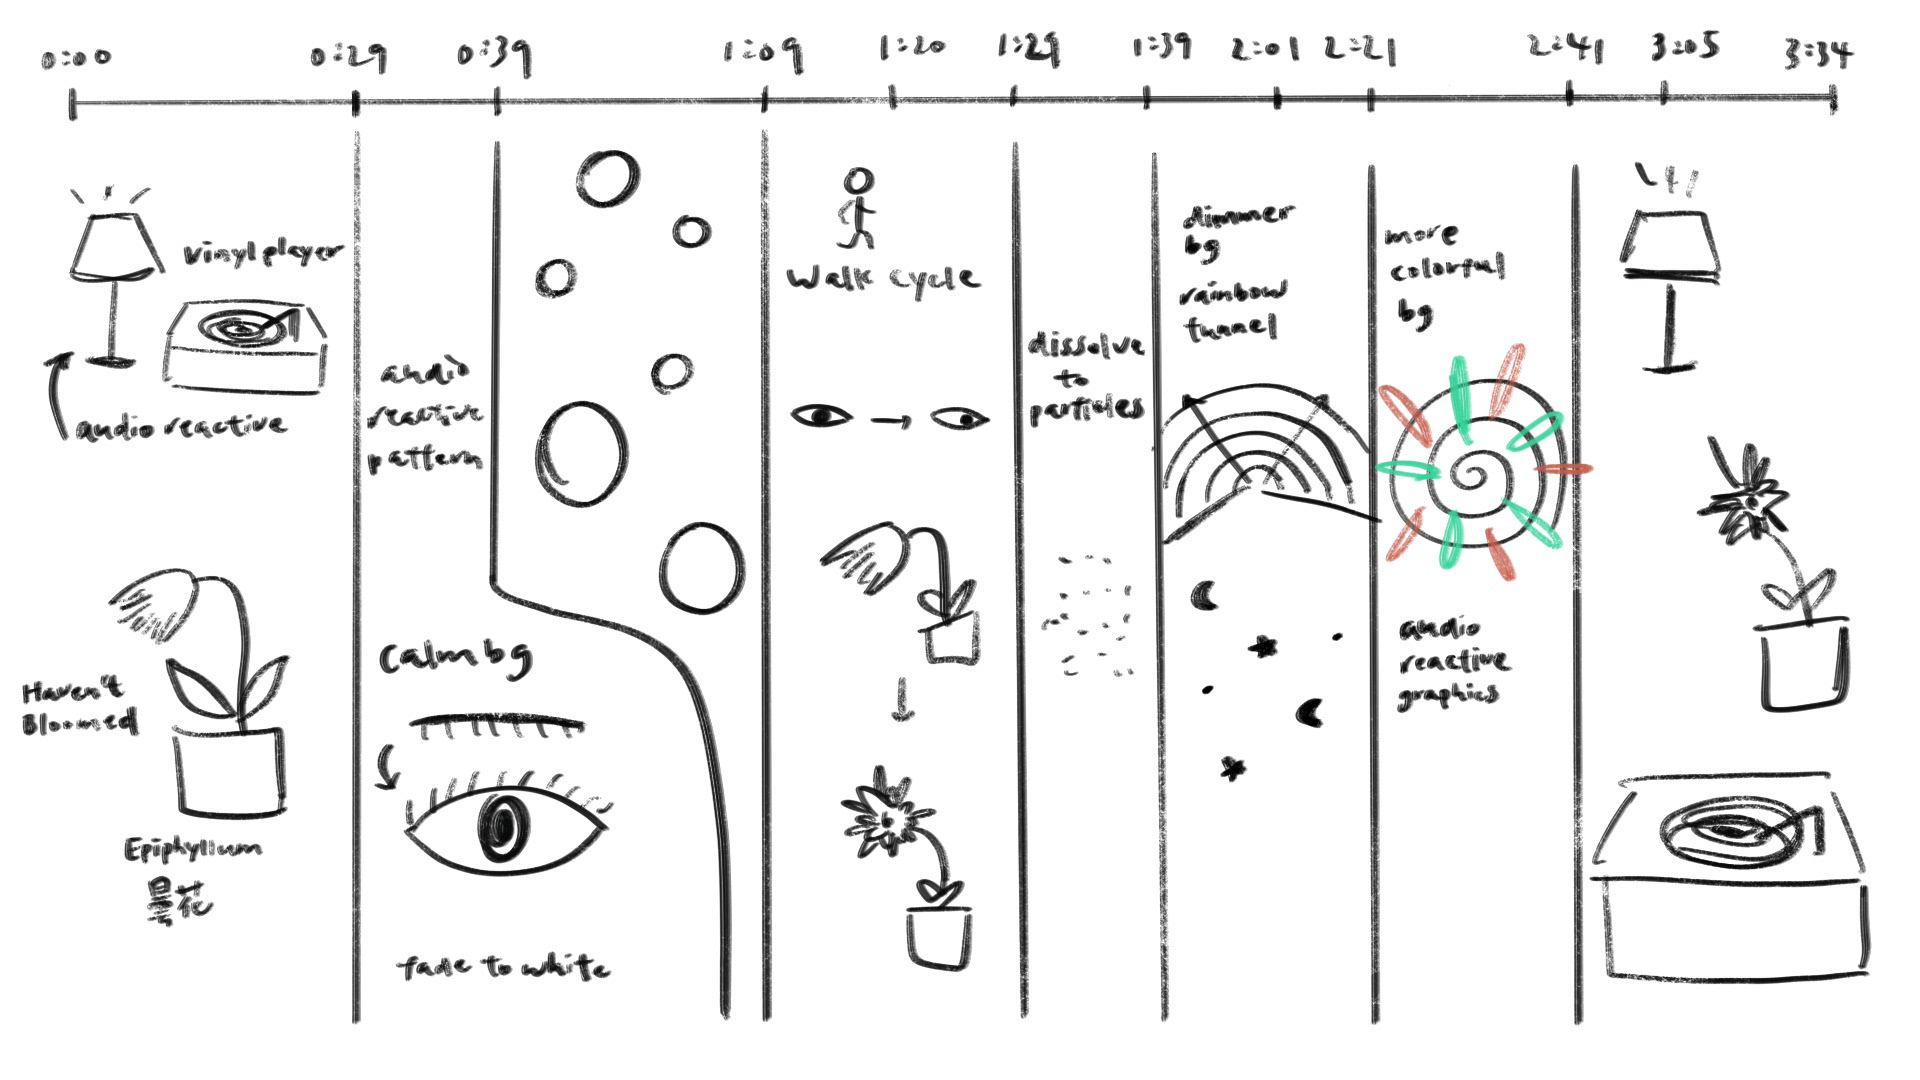 0:00 0:29 0:39 1:09 1:20 1:29 1:39 2:01 2:21 2:41 3:05 3:34
vinyl player
audio reactive
Haven't
Bloomed
Epiphyllum
曇花
audio
reactive
pattern
Calm bg
fade to white
Walk cycle
dissolve
to
particles
dimmer
bg
rainbow
tunnel
more
colorful
bg
audio
reactive
graphics